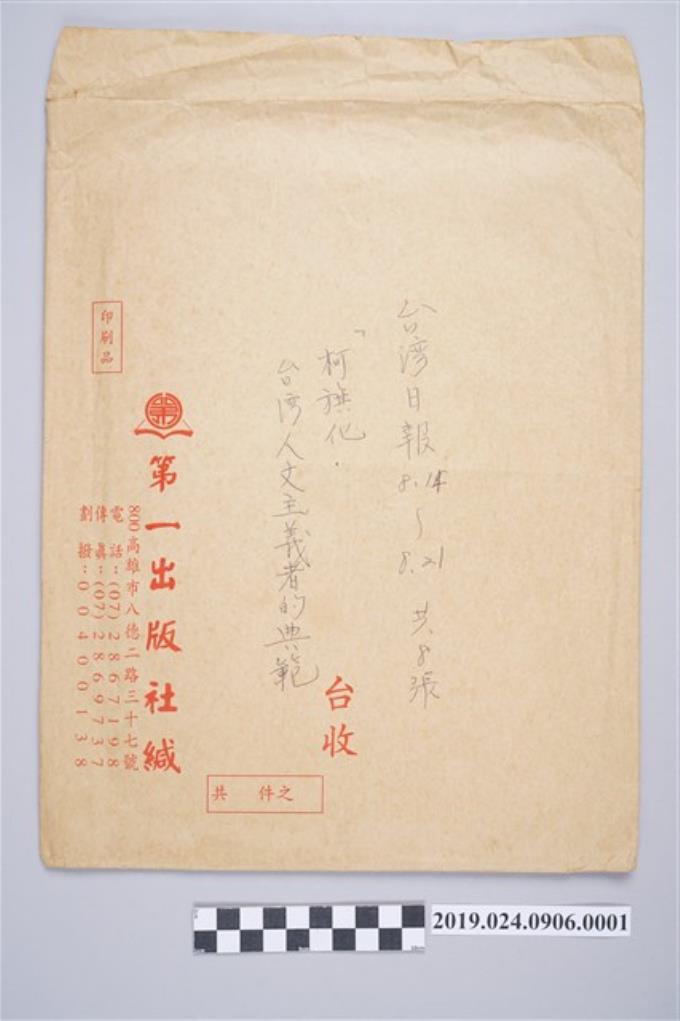 台湾日報 8.14~8.21 共8張
「柯旗化.
台湾人文主義者的典範
台收
印刷品
第一出版社緘
800高雄市八德二路三十七號
電話:(07)2867198
傳真:(07)2869737
劃撥:00400138
共 件之
2019.024.0906.0001